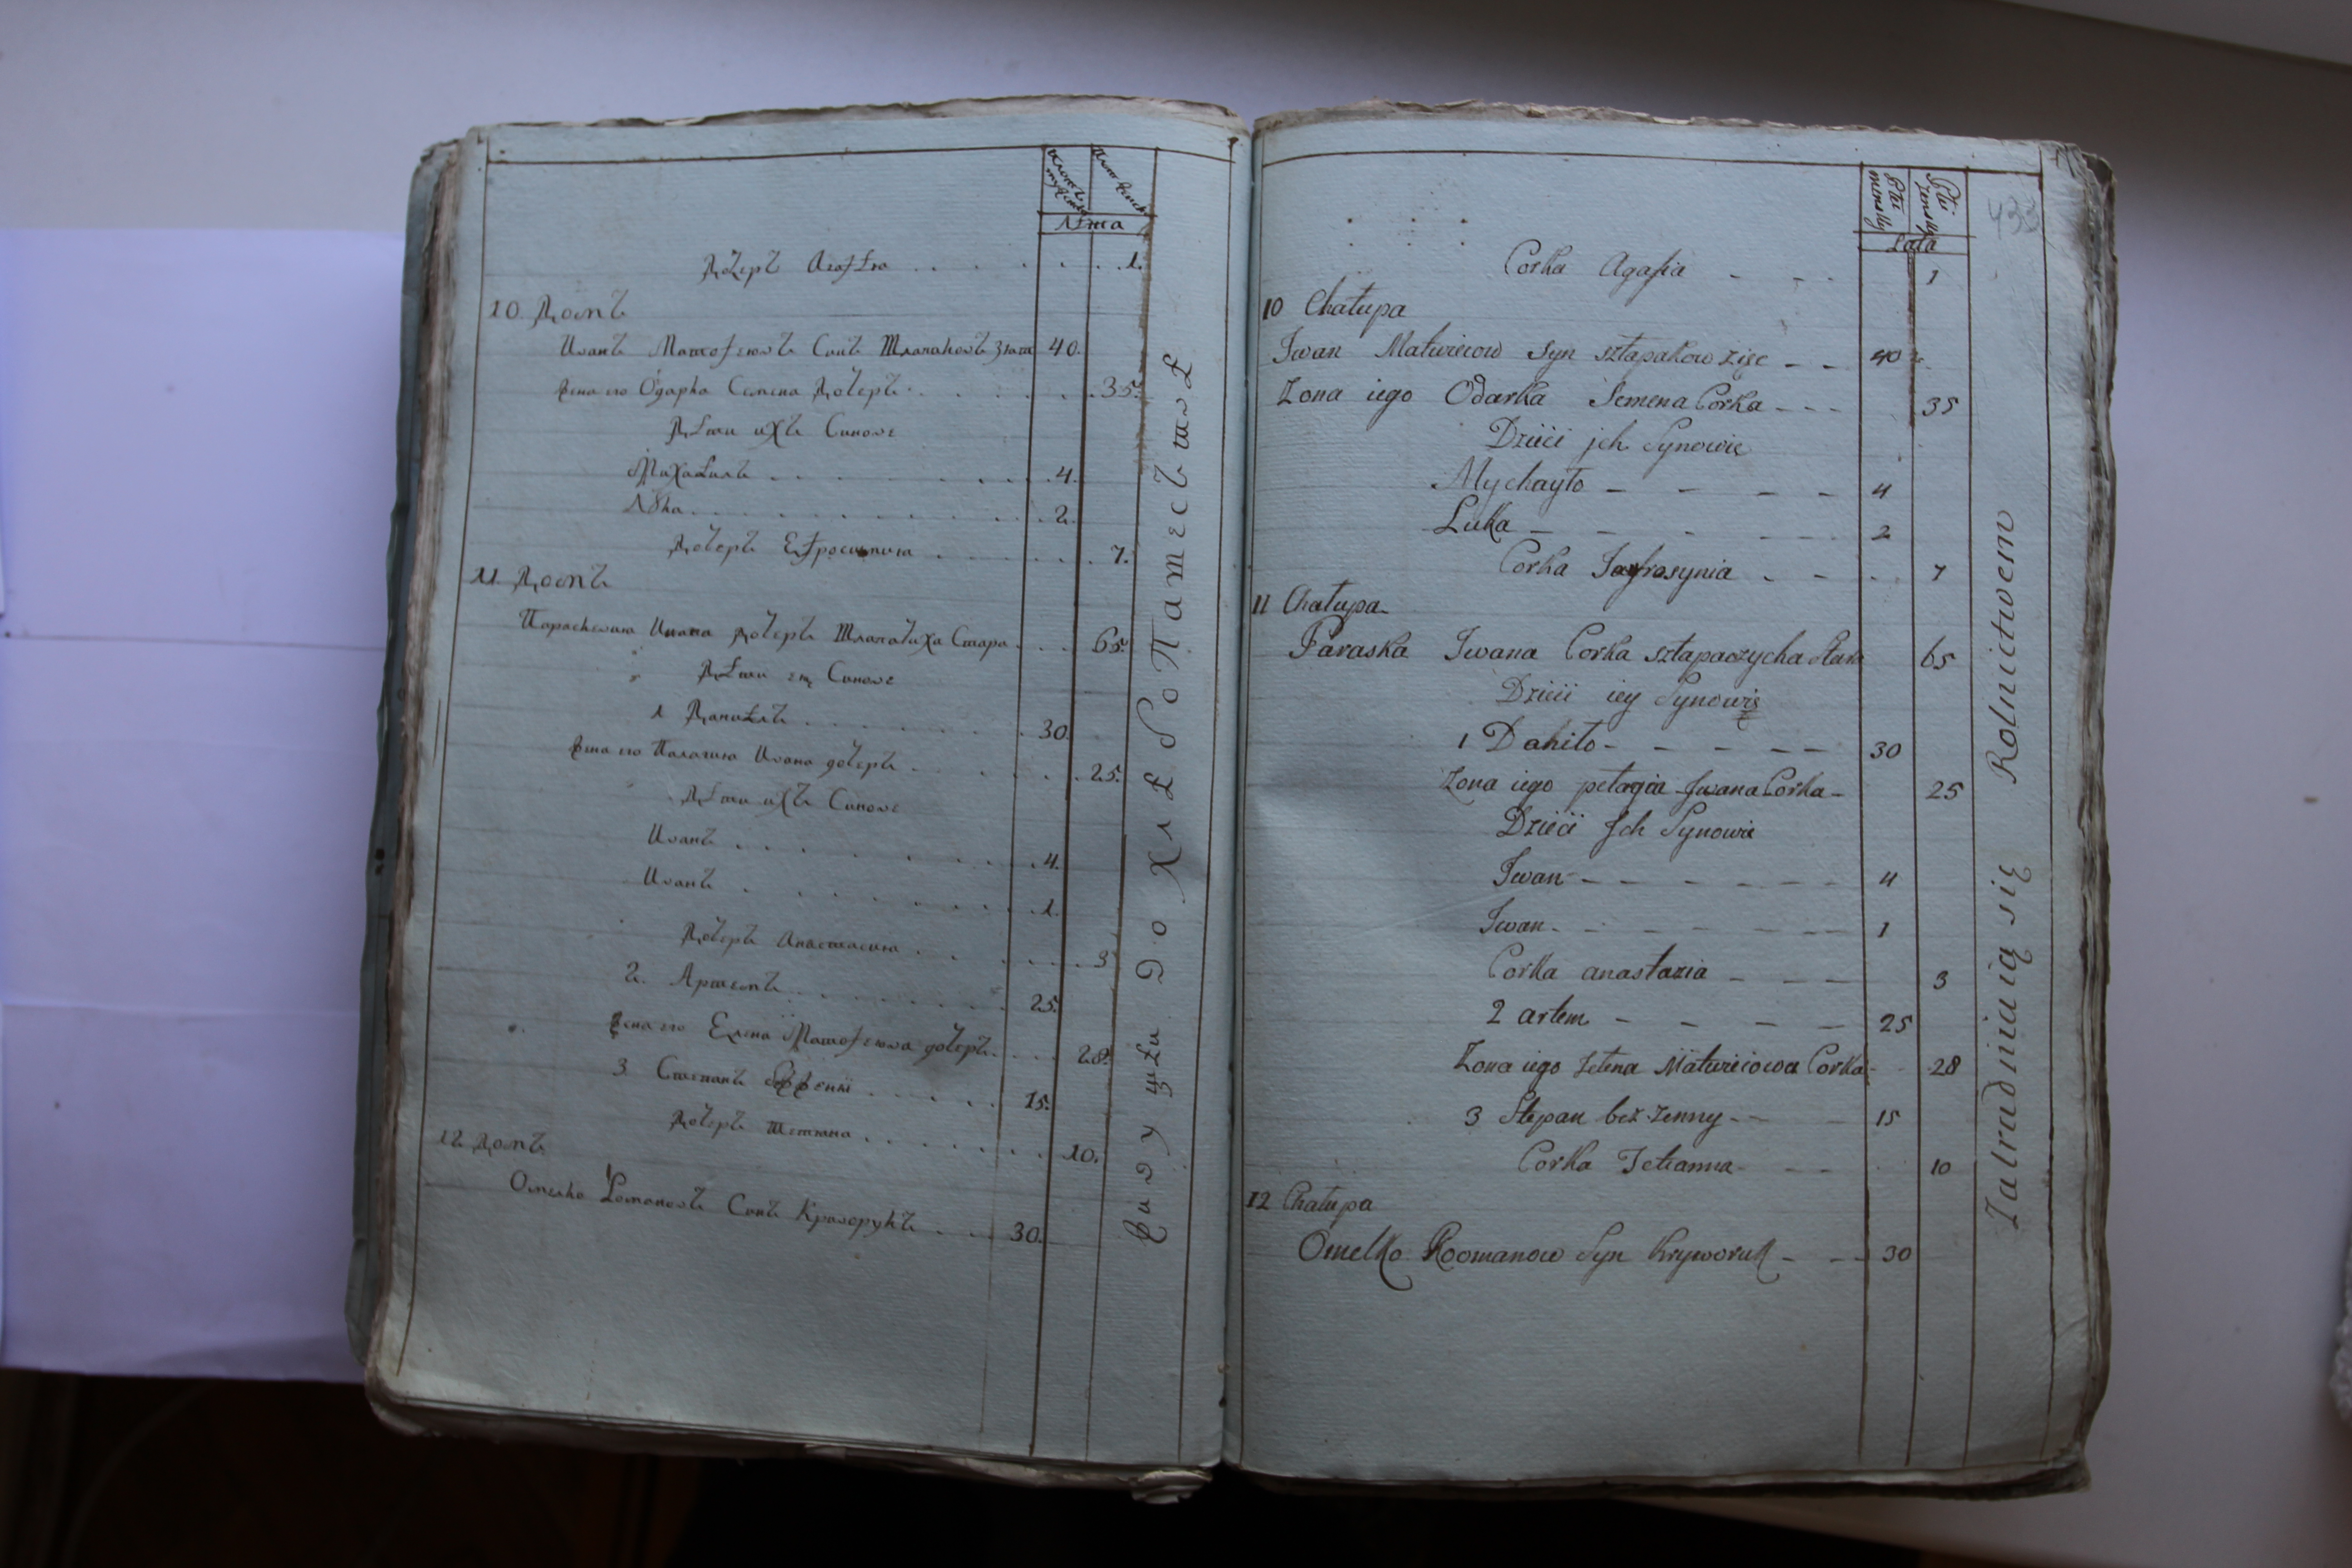 Лѣта
Дочерь Агафѣа . . . . . . 1.
10. Домъ
Иванъ Матофеювъ Синъ Шлапаковъ Зять 40.
Жена его Одарка Семена Дочерь . . . . . 35.
Дѣти ихъ Синове
Михаѣлъ . . . . . . . 4.
Лѹка . . . . . . . . 2.
Дочерь Ефросиния . . . . . 7.
11 Домъ
Параскевия Ивана дочерь Шлапачиха Стара . . . 65.
Дѣти еѧ Синове
1 Даниѣлъ . . . . . . . 30.
Жена его Палагия Ивана дочерь . . . . . 25.
Дѣти ихъ Синове
Иванъ . . . . . . . . 4.
Иванъ . . . . . . . . 1.
Дочерь Анастасия . . . . . 3
2. Артемъ . . . . . . . 25.
Жена его Елена Матофеюва дочерь . . . . 28.
3 Степанъ . . . . . 15.
Дочерь Тетяна . . . . . . . 10.
12 Домъ
Омелко Романовъ Синъ Криворукъ . . . 30.
до Хлѣбопатесътвѣ
433
Płci męskiy
Płci Zenskiy
Lata
Corka Agafia - - - 1
10 Chałupa
Jwan Matwieiow Syn sztapakow zięc - - 40
Zona iego Odarka Semena Corka - - - 35
Dzieci jch Synowie
Mychayło - - - - 4
Luka - - - - - 2
Corka Jagfrosynia - - - 7
11 Chałupa
Paraska Jwana Corka sztapaczycha stara 65
Dzieci iey Synowie
1 Daniło - - - - - 30
Zona iego pelagia Jwana Corka - 25
Dzieci Jch Synowie
Jwan - - - - - - 4
Jwan - - - - - - 1
Corka anastazia - - - - 3
2 artem - - - - - 25
Zona iego Jelena Matwieiowa Corka - - 28
3 Stepan bez Zenny - - 15
Corka Tetianna - - - 10
12 Chałupa
Omelko Roomanow Syn Kryworuk - - - 30
Zatrudniaią się Rolnictwem